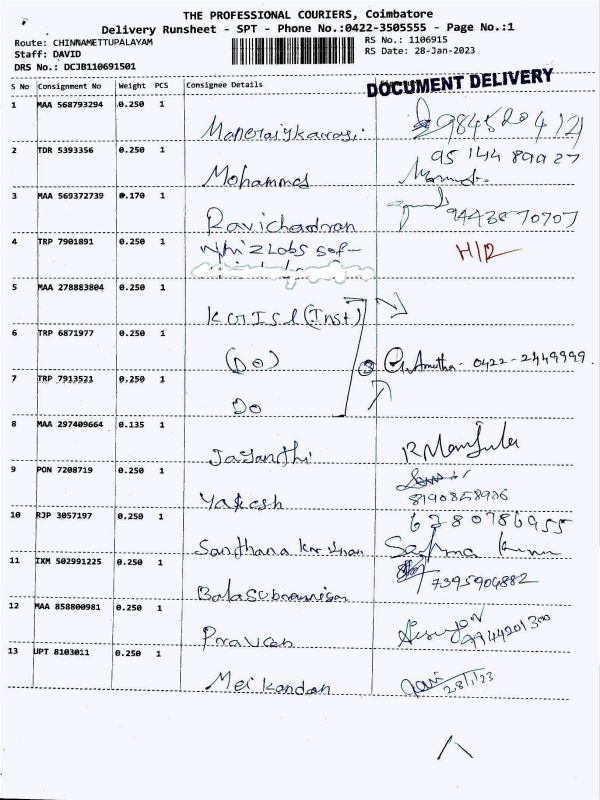 THE PROFESSIONAL COURIERS, Coimbatore
Delivery Runsheet - SPT - Phone No.:0422-3505555 - Page No.:1
Route: CHINNAMETTUPALAYAM
RS No.: 1106915
Staff: DAVID
RS Date: 28-Jan-2023
DRS No.: DCJB110691501
DOCUMENT DELIVERY
S No Consignment No Weight PCS Consignee Details
1 MAA 568793294 0.250 1
2 TDR 5393356 0.250 1
95 144 89927
Mohammed
3 MAA 569372739 0.170 1
Ravichadran 9443870707
4 TRP 7901891 0.250 1
Whizlabs sof-
H/R
5 MAA 278883804 0.250 1
KGISL (Inst)
6 TRP 6871977 0.250 1
(DO) 3 Amutha - 0422 - 2449999.
7 TRP 7913521 0.250 1
DO
8 MAA 297409664 0.135 1
Jayanthi R Manjula
9 PON 7208719 0.250 1
Yakesh 8190858906
10 RJP 3057197 0.250 1
6280786955
Santhana Krishnan
11 IXM 502991225 0.250 1
7395904882
Balasubramnian
12 MAA 858800981 0.250 1
Praveen 9944201300
13 UPT 8103011 0.250 1
Meikandan 28/1/23